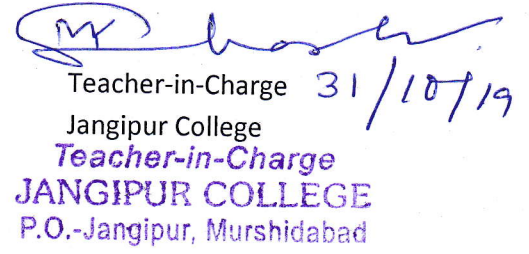 Teacher-in-Charge 31/10/19
Jangipur College
Teacher-in-Charge
JANGIPUR COLLEGE
P.O.-Jangipur, Murshidabad